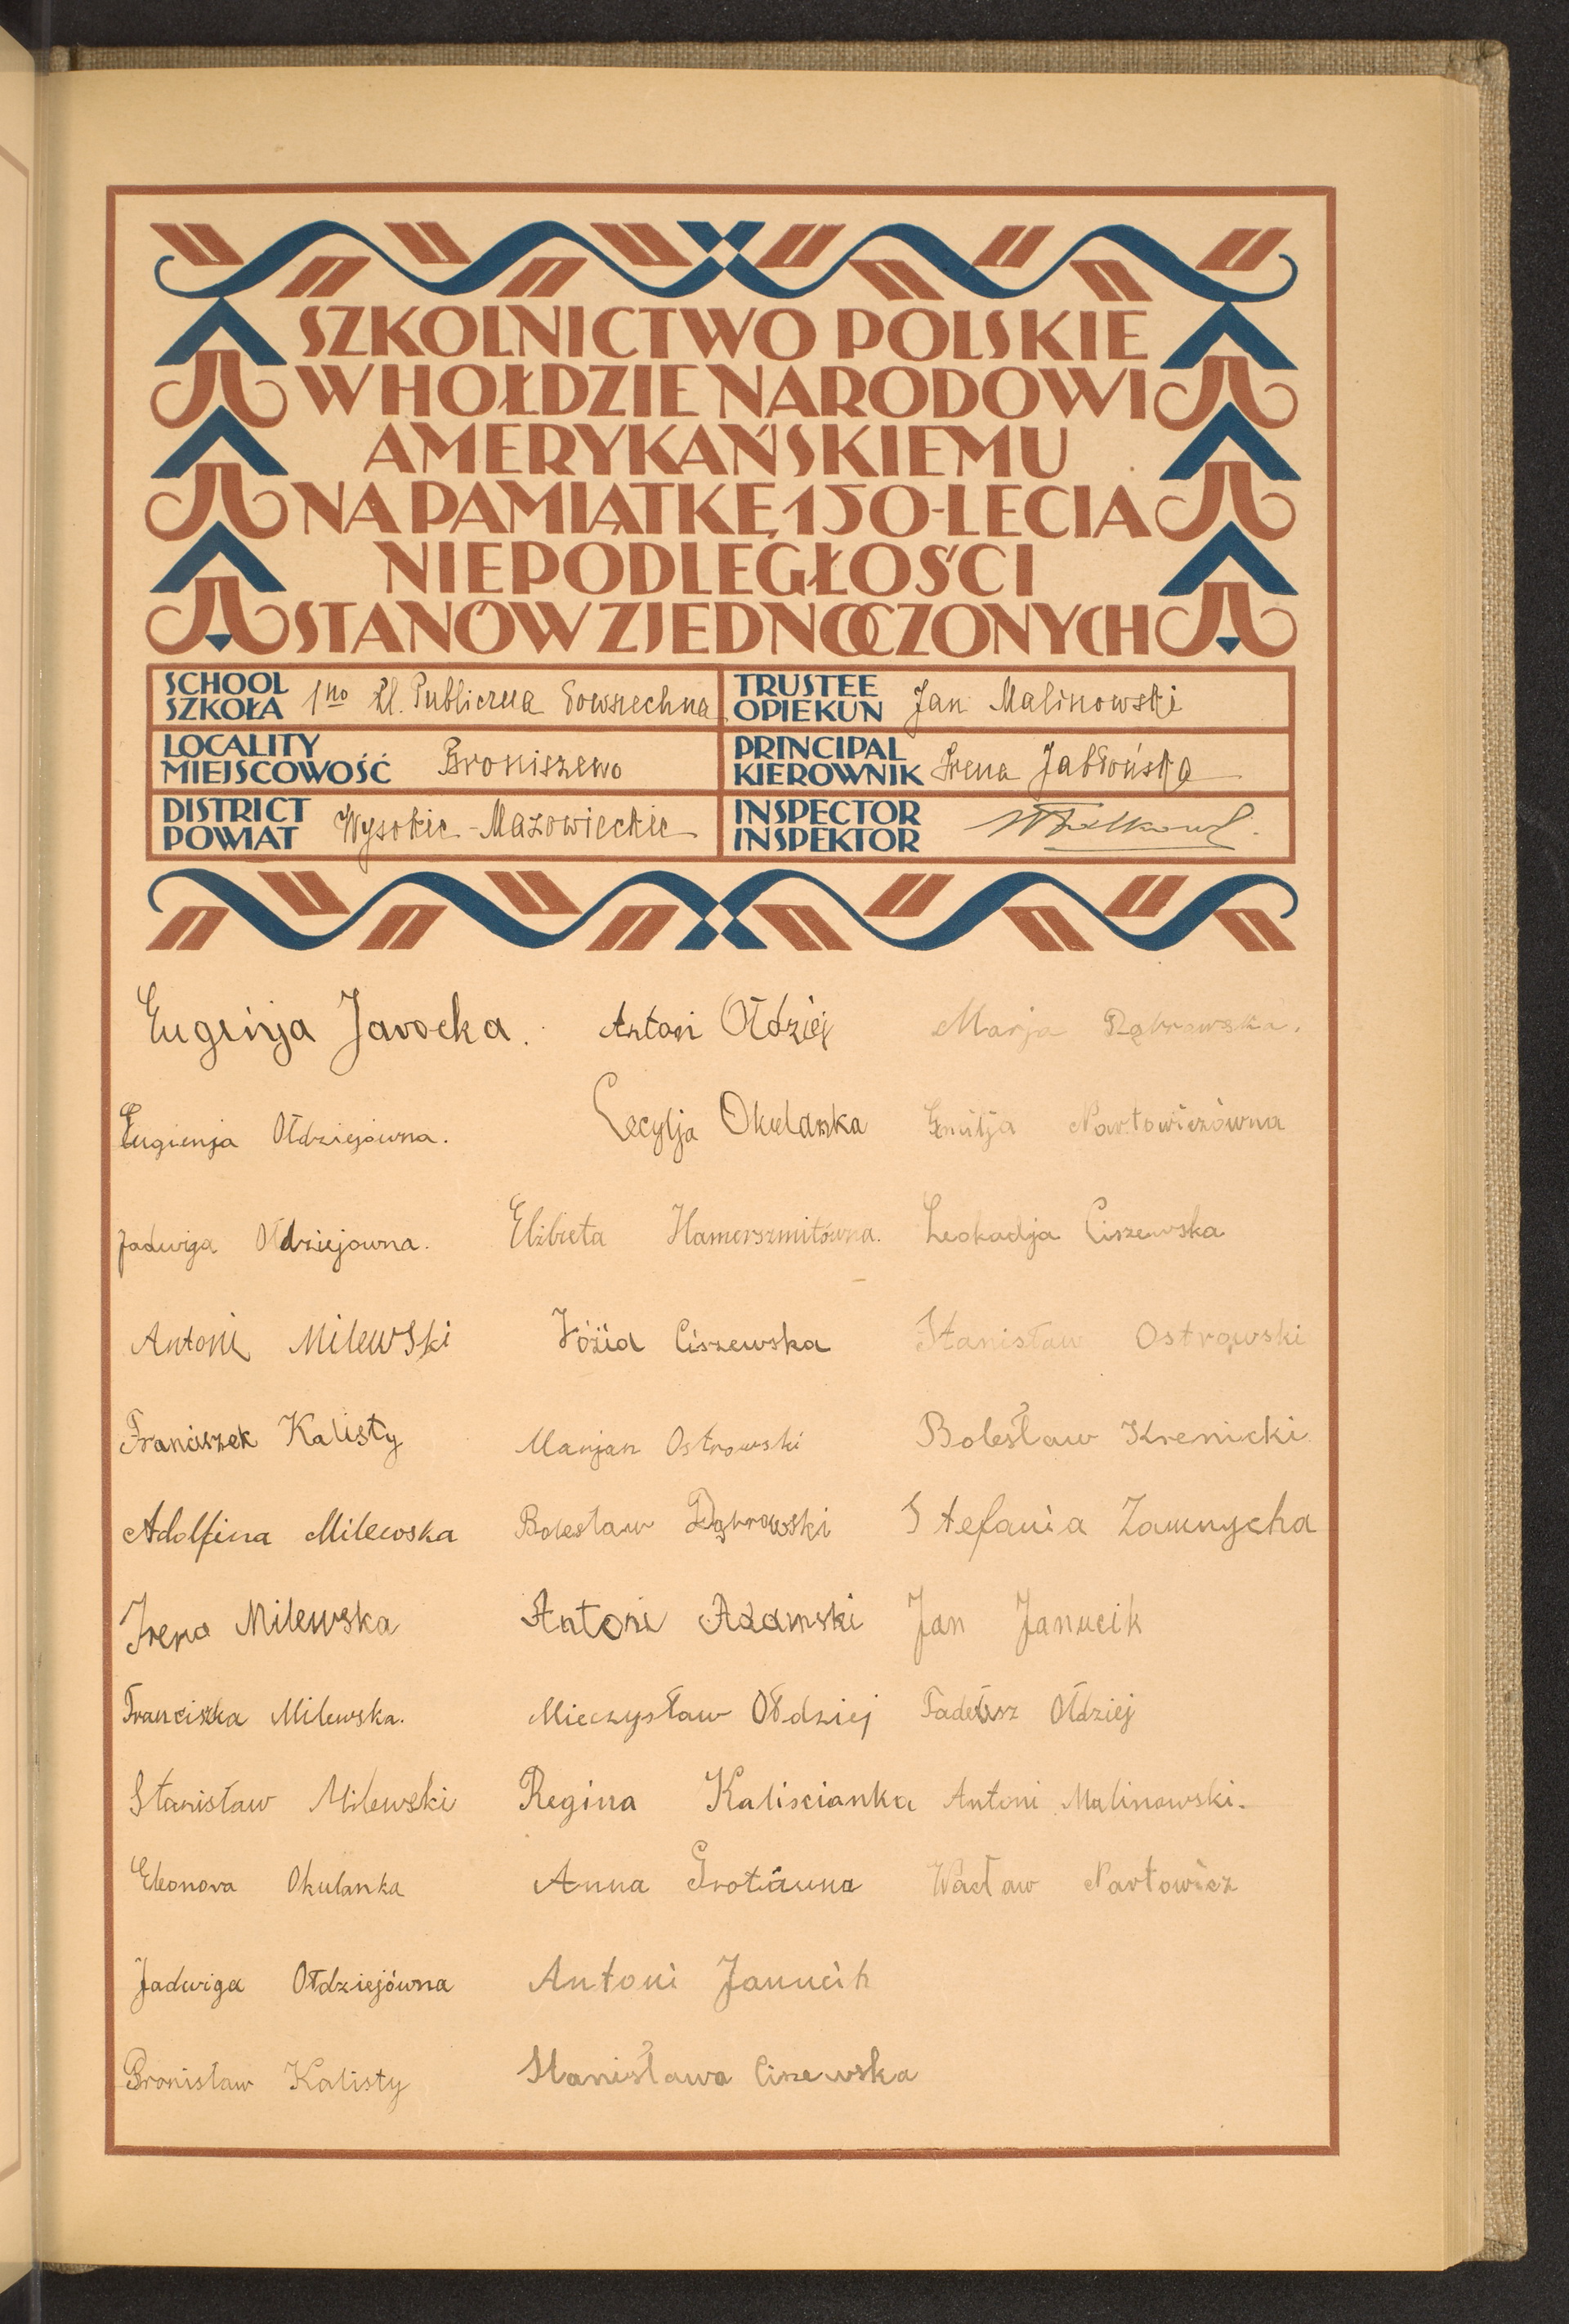 SZKOLNICTWO POLSKIE
W HOŁDZIE NARODOWI
AMERYKAŃSKIEMU
NA PAMIĄTKĘ 150-LECIA
NIEPODLEGŁOŚCI
STANÓW ZJEDNOCZONYCH
SCHOOL SZKOŁA 1no kl. Publiczna Powszechna
TRUSTEE OPIEKUN Jan Malinowski
LOCALITY MIEJSCOWOŚĆ Broniszewo
PRINCIPAL KIEROWNIK Irena Jabłońska
DISTRICT POWIAT Wysokie-Mazowieckie
INSPECTOR INSPEKTOR
Eugenja Jarocka.
Antoni Ołdziej
Marja Dąbrowska.
Eugienja Ołdziejówna.
Cecylja Okulanka
Emilja Nartowiczówna
Jadwiga Ołdziejowna.
Elżbieta Hamerszmitówna.
Leokadja Ciszewska
Antoni Milewski
Józia Ciszewska
Stanisław Ostrowski
Franciszek Kalisty
Marjan Ostrowski
Bolesław Krenicki
Adolfina Milewska
Bolesław Dąbrowski
Stefania Zamnycha
Irena Milewska
Antoni Adamski
Jan Janucik
Franciszka Milewska.
Mieczysław Ołdziej
Tadeusz Ołdziej
Stanisław Milewski
Regina Kaliscianka
Antoni Malinowski.
Eleonora Okulanka
Anna Grotówna
Wacław Nartowicz
Jadwiga Ołdziejówna
Antoni Janucik
Bronisław Kalisty
Stanisława Ciszewska